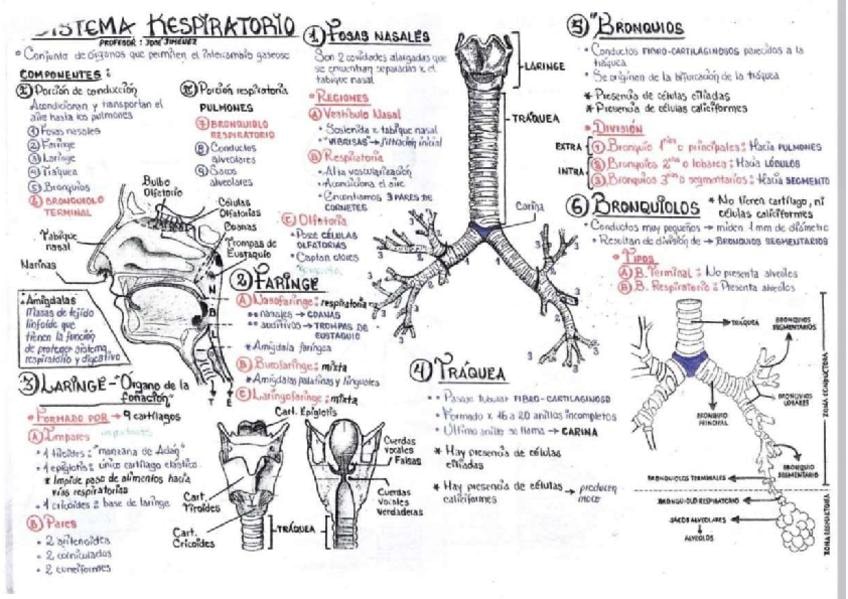 SISTEMA RESPIRATORIO
PROFESOR: JOSÉ JIMÉNEZ
* Conjunto de órganos que permiten el intercambio gaseoso
COMPONENTES:
I) Porción de conducción
Acondicionan y transportan el
aire hasta los pulmones
① Fosas nasales
② Faringe
③ Laringe
④ Tráquea
⑤ Bronquios
⑥ BRONQUIOLO
TERMINAL
II) Porción respiratoria
PULMONES
⑦ BRONQUIOLO
RESPIRATORIO
⑧ Conductos
alveolares
⑨ Sacos
alveolares
Bulbo
Olfatorio
Células
Olfatorias
Coanas
Trompas de
Eustaquio
Tabique
nasal
Narinas
N
B
L
T
E
* Amígdalas
Masas de tejido
linfoide que
tienen la función
de proteger sistema
respiratorio y digestivo
① FOSAS NASALES
Son 2 cavidades alargadas que
se encuentran separadas x el
tabique nasal
* REGIONES
Ⓐ Vestíbulo Nasal
• Sostenida x tabique nasal
• "VIBRISAS" → filtración inicial
Ⓑ Respiratoria
• Alta vascularización
• Acondiciona el aire
• Encontramos 3 PARES DE
CORNETES
Ⓒ Olfatoria
• Posee CÉLULAS
OLFATORIAS
• Captan olores
② FARINGE
Ⓐ Nasofaringe: respiratoria
** nasales → COANAS
** auditivos → TROMPAS DE
EUSTAQUIO
* Amígdala faríngea
Ⓑ Bucofaringe: mixta
* Amígdalas palatinas y linguales
Ⓒ Laringofaringe: mixta
③ LARINGE - "Órgano de la
fonación"
* FORMADO POR → 9 cartílagos
Ⓐ Impares
• 1 tiroides: "manzana de Adán"
• 1 epiglotis: único cartílago elástico
* Impide paso de alimentos hacia
vías respiratorias
• 1 cricoides: base de laringe
Ⓑ Pares
• 2 aritenoides
• 2 corniculados
• 2 cuneiformes
Cart. Epiglotis
Cuerdas
vocales
Falsas
Cuerdas
vocales
Verdaderas
Cart.
Tiroides
Cart.
Cricoides
TRÁQUEA
LARINGE
TRÁQUEA
Carina
④ TRÁQUEA
• Pasaje tubular FIBRO-CARTILAGINOSO
• Formado x 16 a 20 anillos incompletos
• Último anillo se llama → CARINA
* Hay presencia de células
ciliadas
* Hay presencia de células
caliciformes → producen
moco
⑤ BRONQUIOS
• Conductos FIBRO-CARTILAGINOSOS parecidos a la
tráquea
• Se originan de la bifurcación de la tráquea
* Presencia de células ciliadas
* Presencia de células caliciformes
* DIVISIÓN
EXTRA ① Bronquio 1rios o principales: Hacia PULMONES
INTRA ② Bronquios 2rios o lobares: Hacia LÓBULOS
③ Bronquios 3rios o segmentarios: Hacia SEGMENTO
⑥ BRONQUIOLOS
* No tienen cartílago, ni
células caliciformes
• Conductos muy pequeños → miden 1mm de diámetro
• Resultan de división de → BRONQUIOS SEGMENTARIOS
* TIPOS
Ⓐ B. Terminal: No presenta alveolos
Ⓑ B. Respiratorio: Presenta alveolos
TRÁQUEA
BRONQUIOS
SEGMENTARIOS
BRONQUIOS
LOBARES
BRONQUIO
PRINCIPAL
BRONQUIO
SEGMENTARIO
BRONQUIOLOS TERMINALES
BRONQUIOLO RESPIRATORIO
SACOS ALVEOLARES
ALVEOLOS
ZONA CONDUCTORA